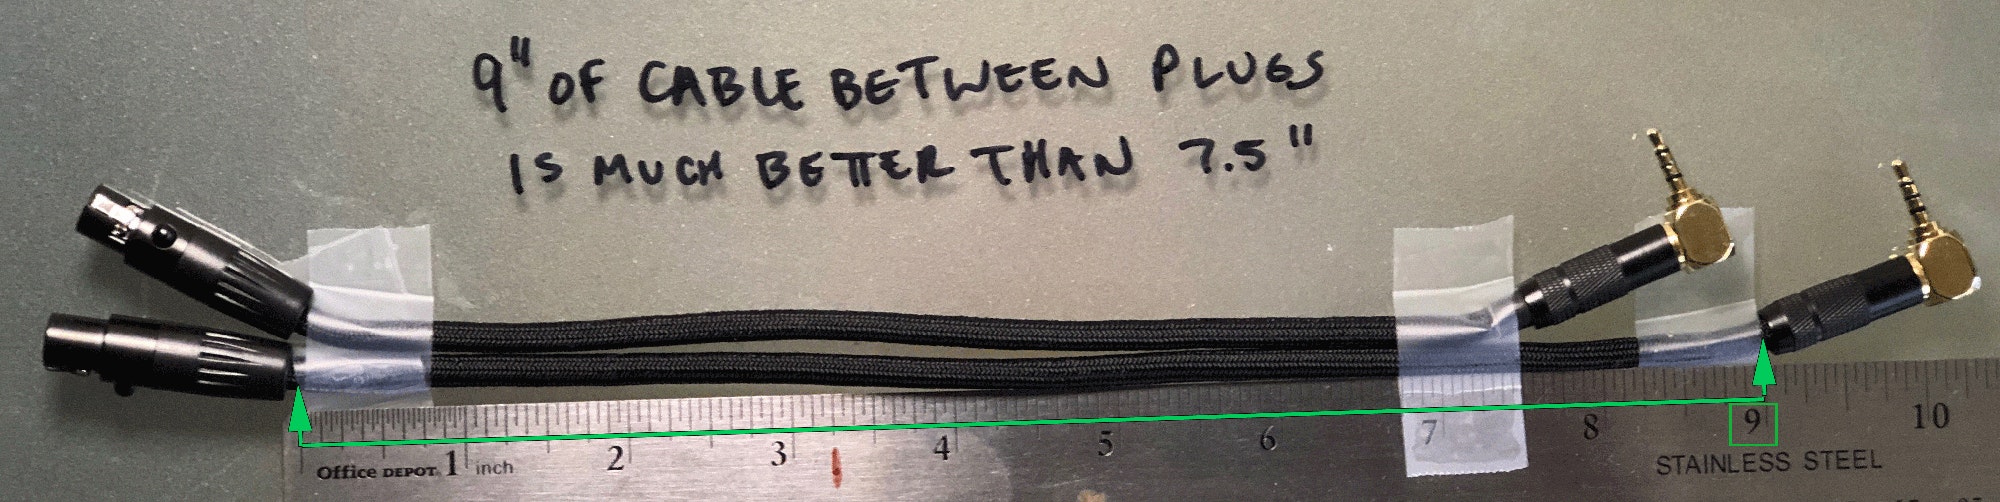 9" OF CABLE BETWEEN PLUGS
IS MUCH BETTER THAN 7.5"
1 2 3 4 5 6 7 8 9 10
Office DEPOT. inch
STAINLESS STEEL